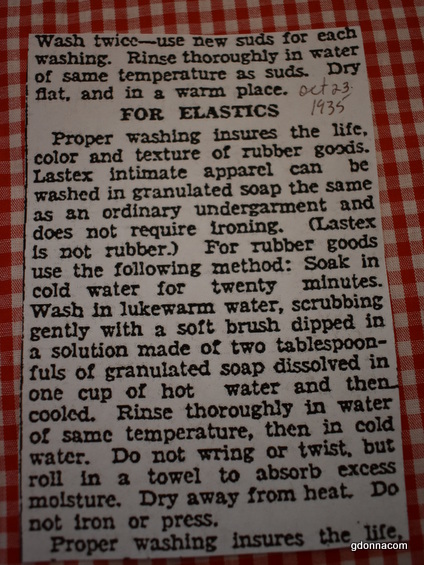 Wash twice—use new suds for each
washing. Rinse thoroughly in water
of same temperature as suds. Dry
flat, and in a warm place.
oct 23.
1935
FOR ELASTICS
Proper washing insures the life,
color and texture of rubber goods.
Lastex intimate apparel can be
washed in granulated soap the same
as an ordinary undergarment and
does not require ironing. (Lastex
is not rubber.) For rubber goods
use the following method: Soak in
cold water for twenty minutes.
Wash in lukewarm water, scrubbing
gently with a soft brush dipped in
a solution made of two tablespoon-
fuls of granulated soap dissolved in
one cup of hot water and then
cooled. Rinse thoroughly in water
of same temperature, then in cold
water. Do not wring or twist, but
roll in a towel to absorb excess
moisture. Dry away from heat. Do
not iron or press.
Proper washing insures the life,
gdonnacom